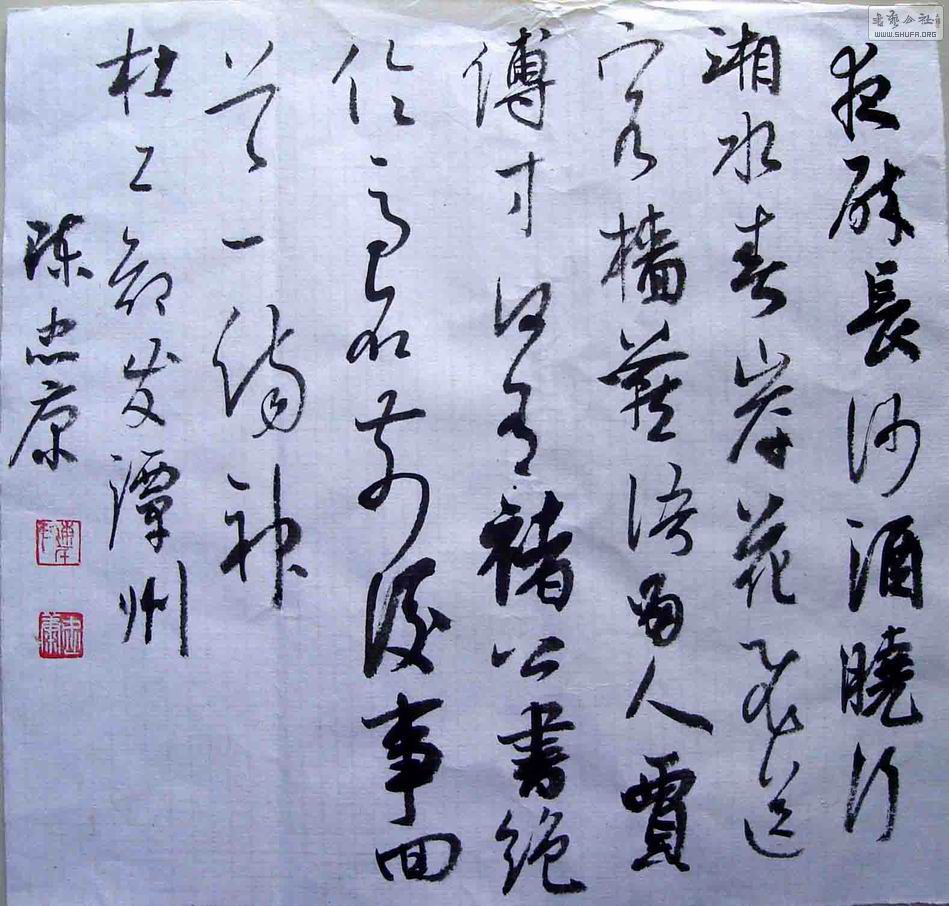 夜醉長沙酒曉行
湘水春岸花飛送
客檣燕語留人賈
傅才何有褚公書絕
倫高名前後事回
首一傷神
杜工部发潭州
陈忠康
忠康
書藝公社
WWW.SHUFA.ORG